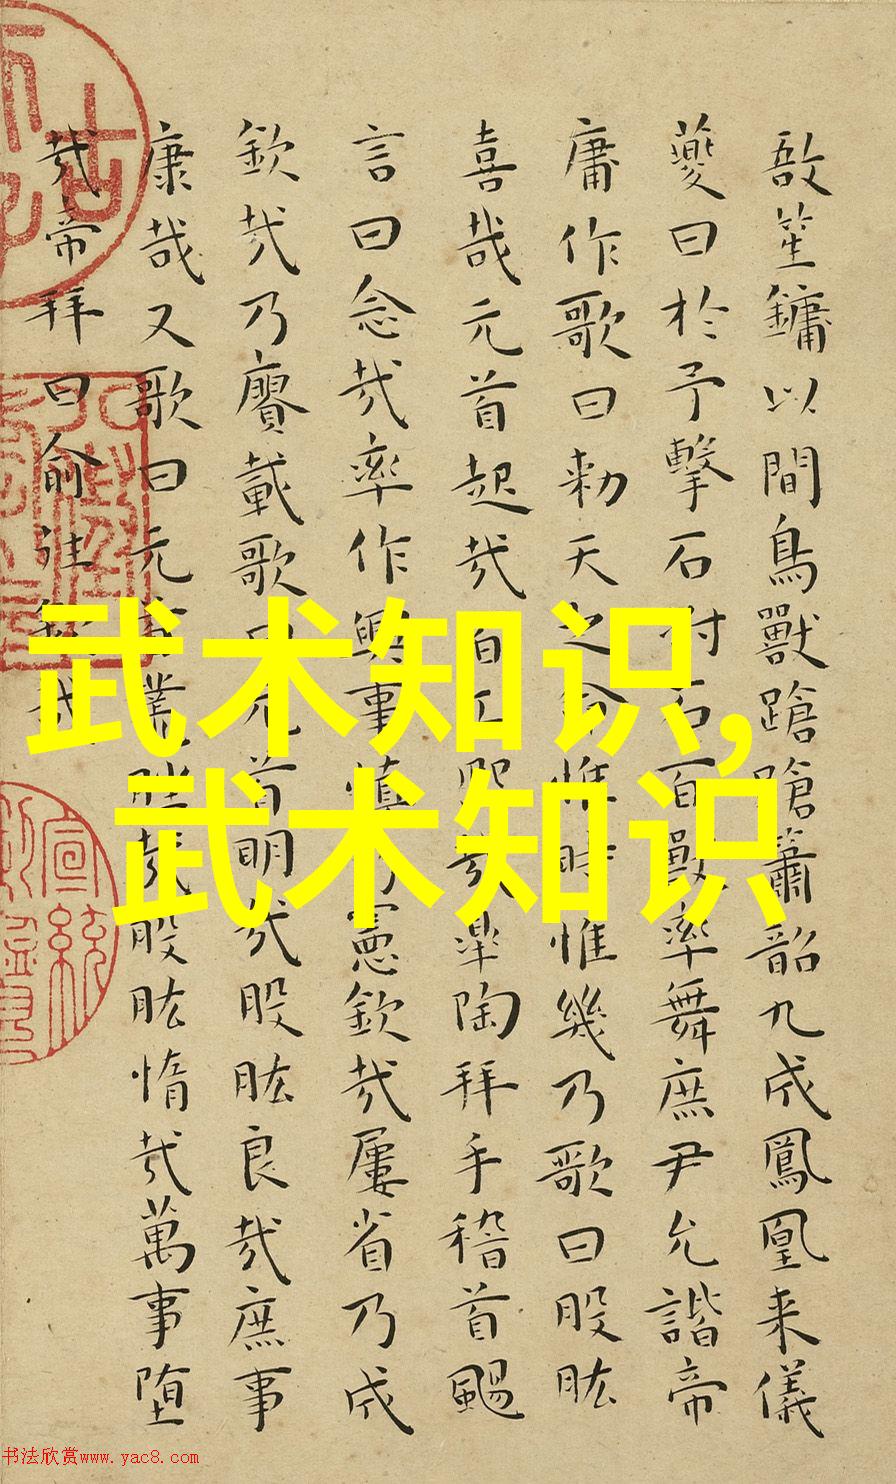 敔笙鏞以間鳥獸蹌蹌簫韶九成鳳凰来儀
夔曰於予擊石拊石百獸率舞庶尹允諧帝
庸作歌曰勅天之命惟時惟幾乃歌曰股肱
喜哉元首起哉百工熙哉皋陶拜手稽首颺
言曰念哉率作興事慎乃憲欽哉屢省乃成
欽哉乃賡載歌曰元首明哉股肱良哉庶事
康哉又歌曰元首叢脞哉股肱惰哉萬事堕
哉帝拜曰俞往欽哉
武术知识,
武术知识
宣統
书法欣赏www.yac8.com